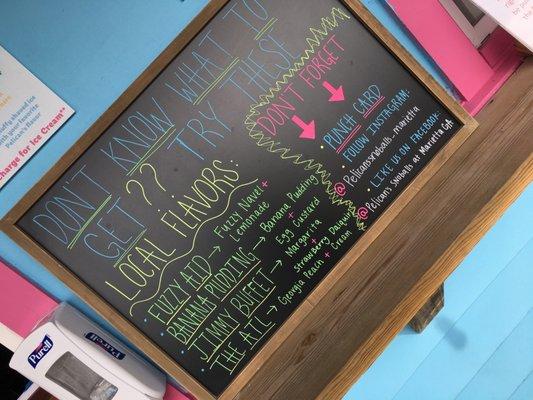 DON'T KNOW WHAT TO
GET?? TRY THESE
LOCAL FLAVORS:
• FUZZY AID → Fuzzy Navel +
Lemonade
• BANANA PUDDING → Banana Pudding
+
Egg Custard
• JIMMY BUFFET → Margarita
+
Strawberry Daiquiri
• THE ATL → Georgia Peach + Cream
DON'T FORGET
• PUNCH CARD
FOLLOW INSTAGRAM:
@Pelicanssnoballs_marietta
• LIKE US ON FACEBOOK:
@Pelican's Snoballs at Marietta GA
fluffy shaved ice
with your favorite
Pelican's flavor
Charge for Ice Cream**
PURELL
PURELL